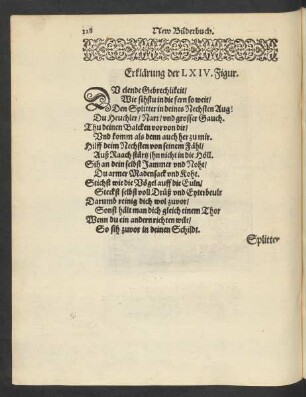 128 New Bilderbuch.
Erklärung der LXIV. Figur.
DV elende Gebrechlikeit/
Wie sihstu in die fern so weit/
Den Splitter in deines Nechsten Aug:
Du Heuchler/ Narr/ und grosser Gauch.
Thu deinen Balcken vor von dir/
Und komm als denn auch her zu mir.
Hilff deim Nechsten von seinem Fähl/
Auß Raach stärtz ihn nicht in die Höll.
Sih an dein selbst Jammer und Noht/
Du armer Madensack und Koht.
Stichst wie die Vögel auff die Euln/
Steckst selbst voll Drüß und Eyterbeuln
Darumb reinig dich wol zuvor/
Sonst hält man dich gleich einem Thor
Wenn du ein andern richten wilt/
So sih zuvor in deinen Schildt.
Splitter